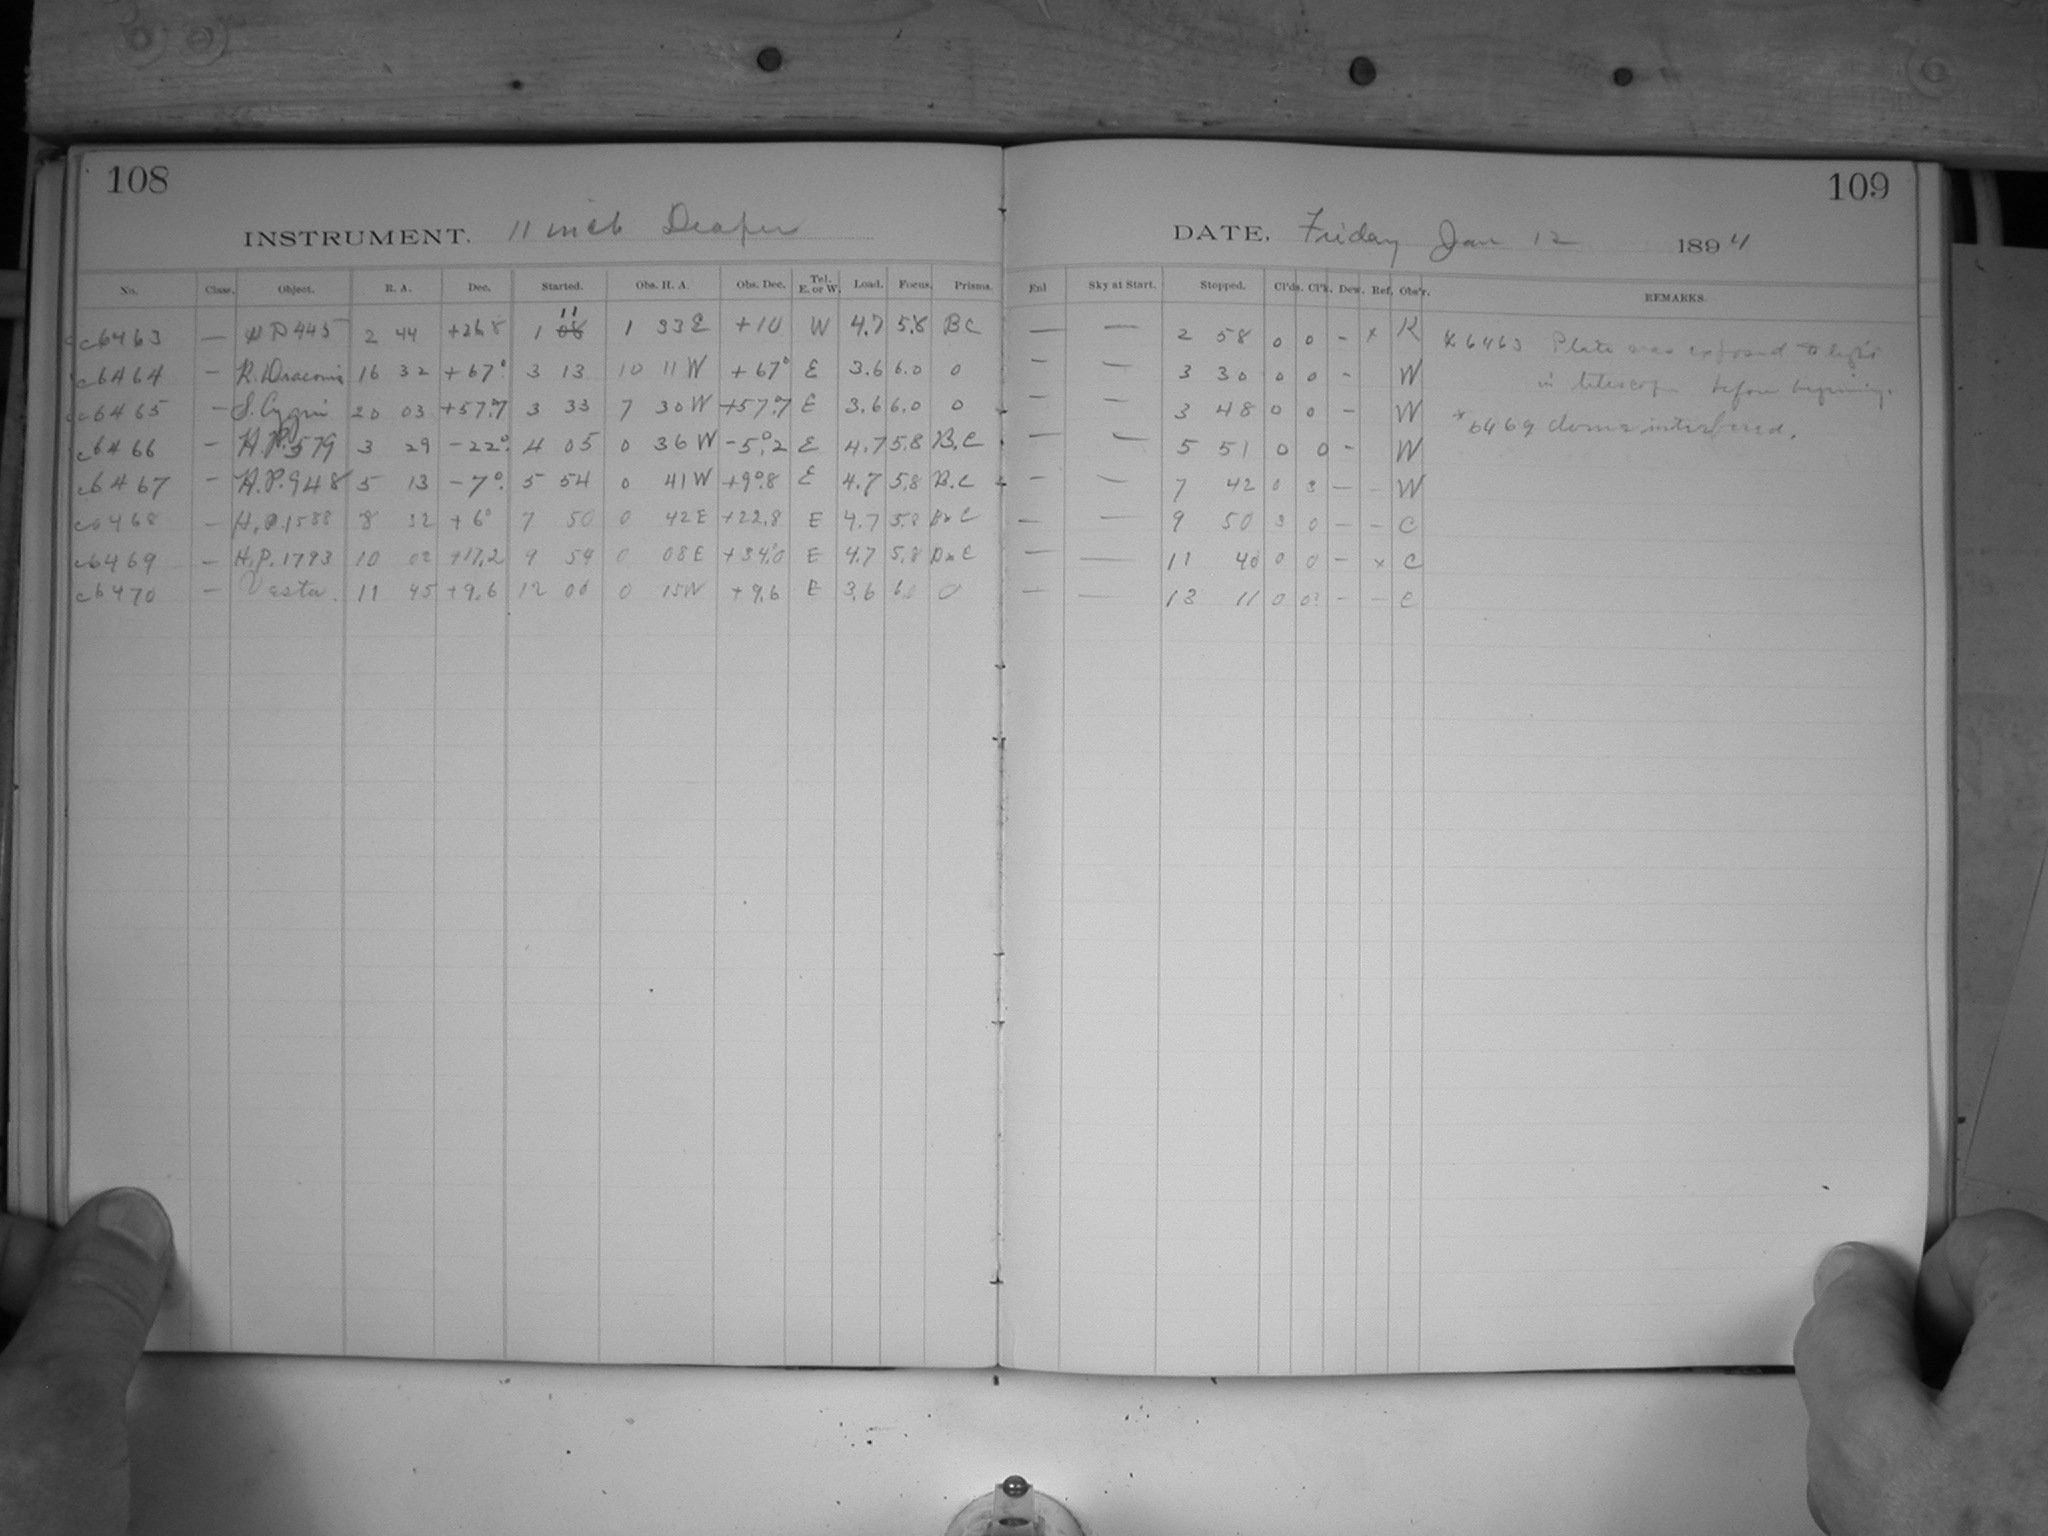 108
INSTRUMENT. 11 inch Draper
No. Class. Object. R. A. Dec. Started. Obs. H. A. Obs. Dec. Tel. E. or W. Load. Focus. Prisms.
c6463 — H P 445 2 44 +26.8 1 08 11 1 33 E +10 W 4.7 5.8 B C
c6464 — R. Draconis 16 32 +67° 3 13 10 11 W +67° E 3.6 6.0 0
c6465 — S. Cygni 20 03 +57.°7 3 33 7 30 W +57.°7 E 3.6 6.0 0
c6466 — H.P. 579 3 29 -22° 4 05 0 36 W -5.°2 E 4.7 5.8 B.C
c6467 — H.P. 948 5 13 -7° 5 54 0 41 W +9.°8 E 4.7 5.8 B.C
c6468 — H.P. 1588 8 32 +6° 7 50 0 42 E +22.8 E 4.7 5.8 B x C
c6469 — H.P. 1793 10 02 +17.2 9 54 0 08 E +34.°0 E 4.7 5.8 B x C
c6470 — Vesta. 11 45 +9.6 12 00 0 15 W +9.6 E 3.6 6.0 0
109
DATE. Friday Jan 12 1894
Enl Sky at Start. Stopped. Cl'ds. Cl'k. Dew. Ref. Obs'r. REMARKS.
— — 2 58 0 0 - x K x 6463 Plate was exposed to light
— — 3 30 0 0 - W in telescope before beginning.
— — 3 48 0 0 - W * 6469 dome interfered.
— — 5 51 0 0 - W
— — 7 42 0 3 — - W
— — 9 50 3 0 - - C
— — 11 40 0 0 - x C
— — 13 11 0 0? - - C